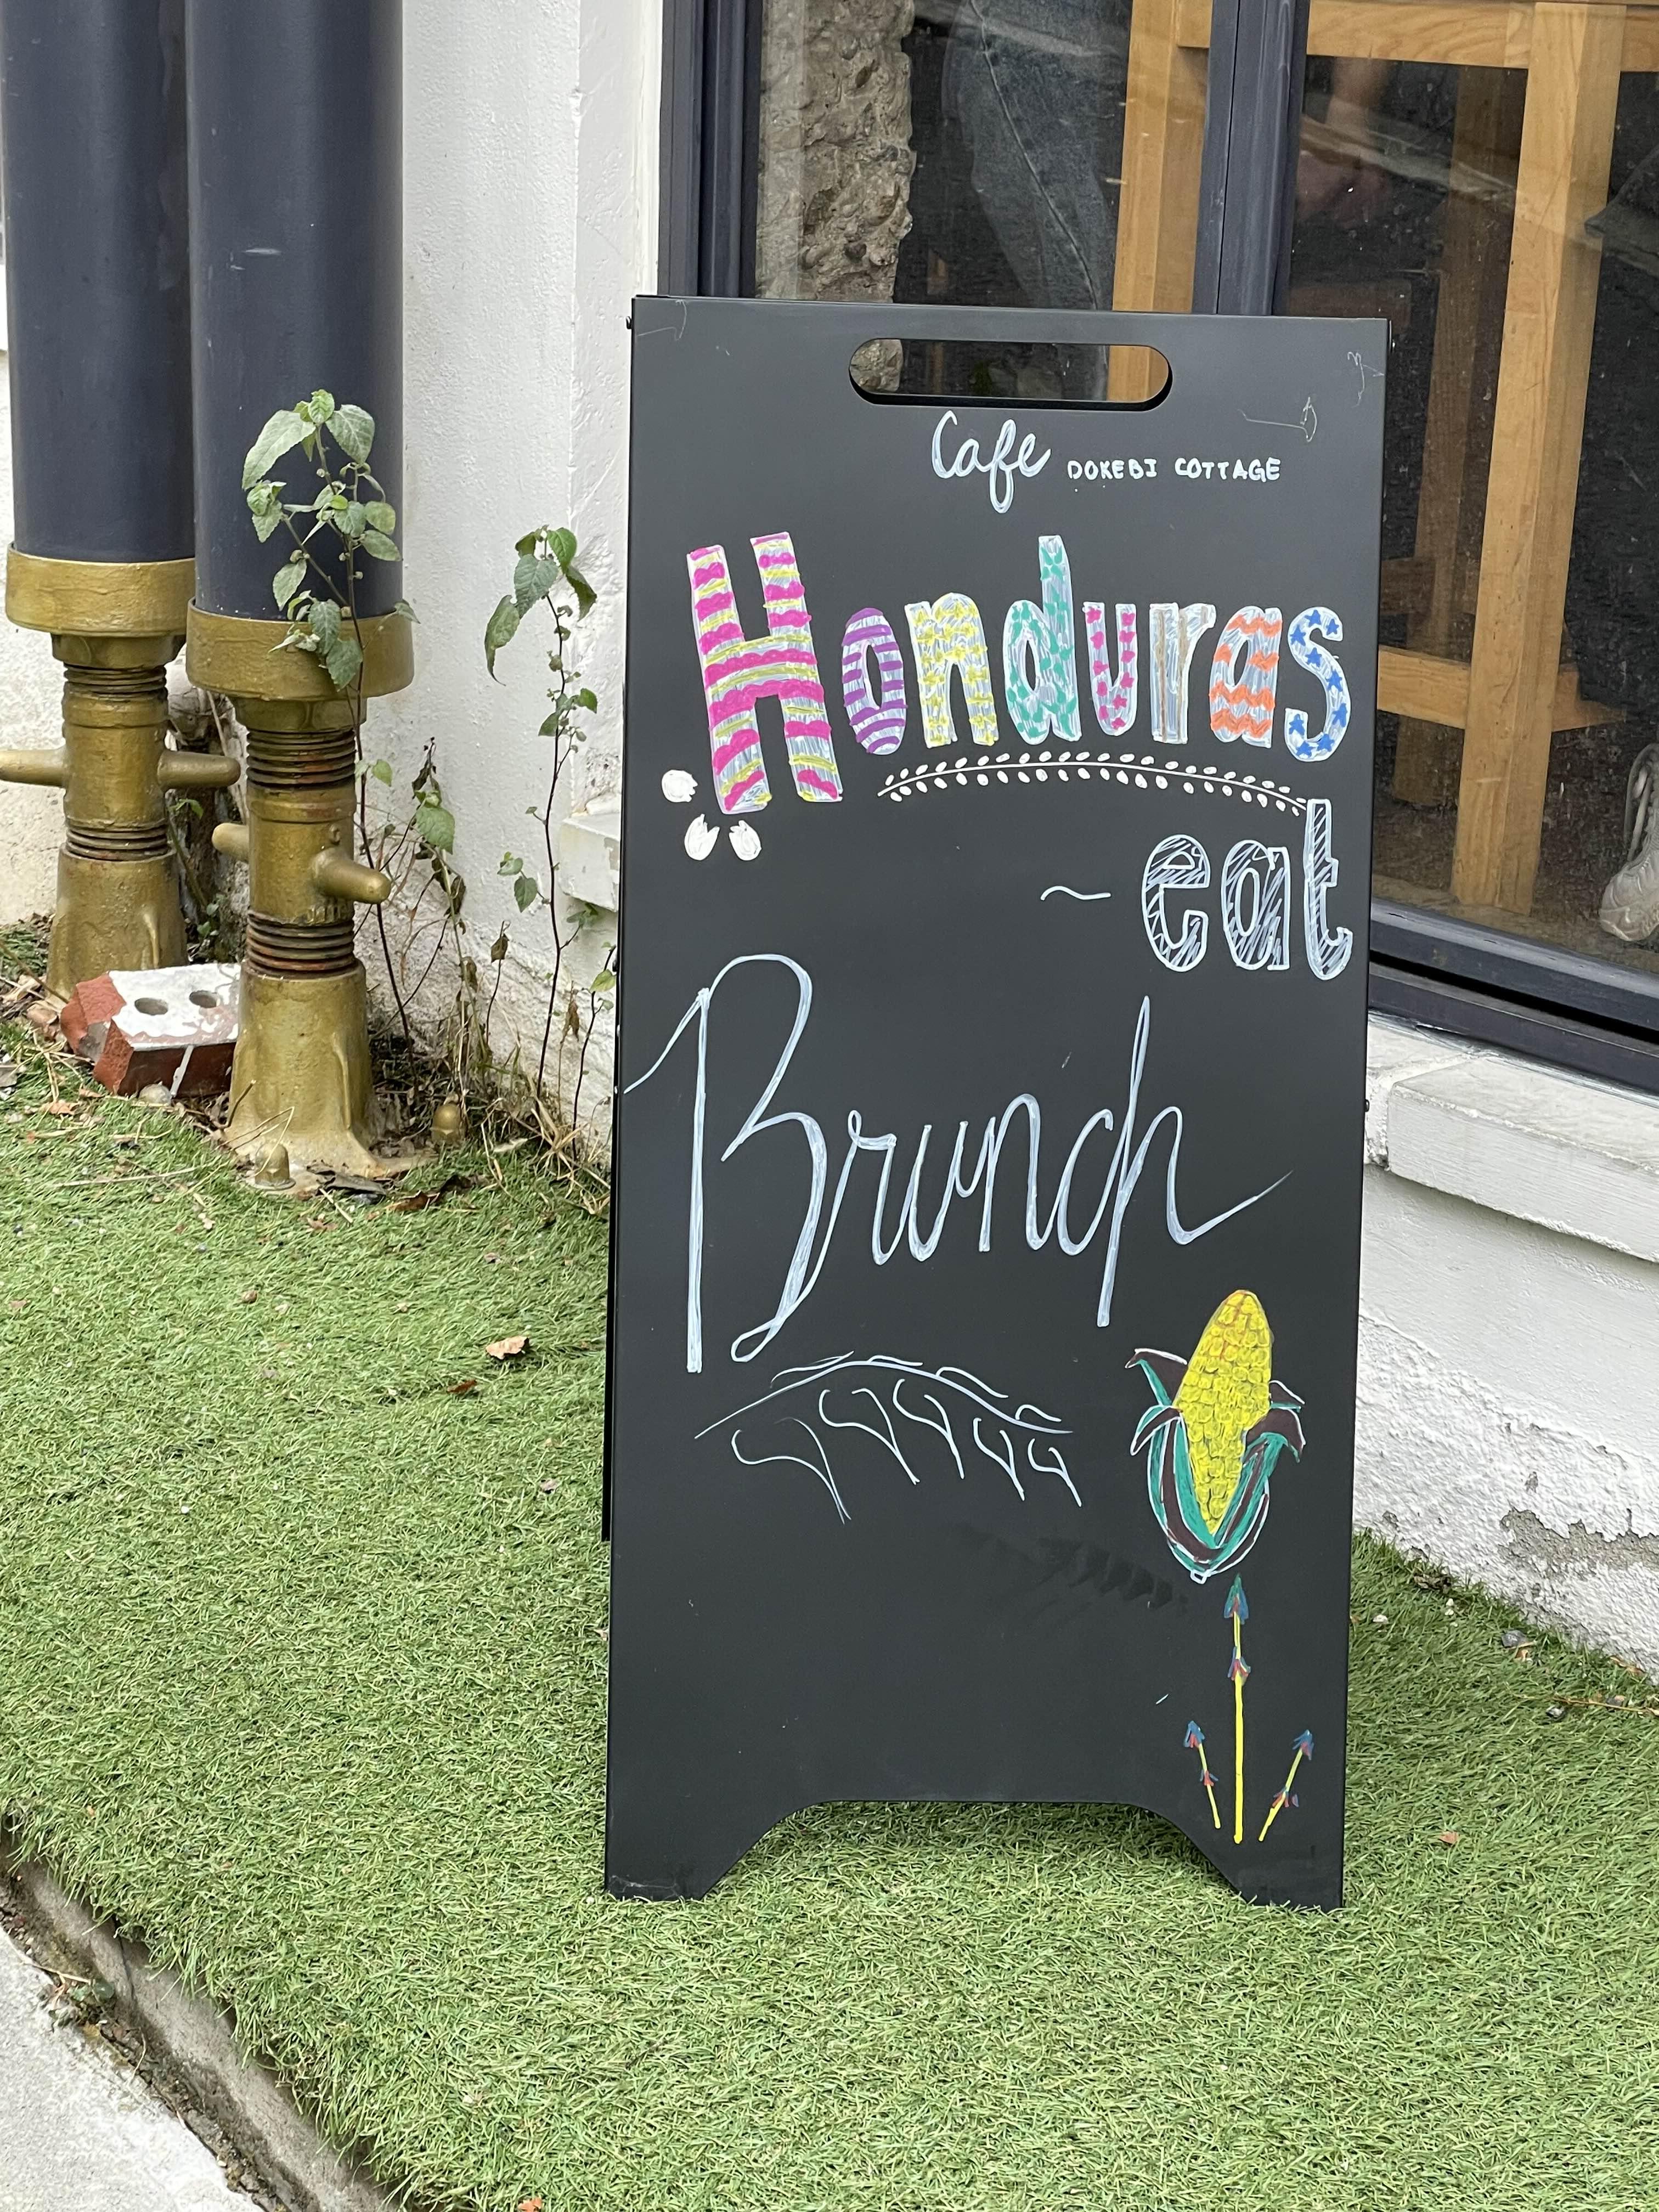 Cafe DOKEBI COTTAGE
Honduras
~ eat
Brunch